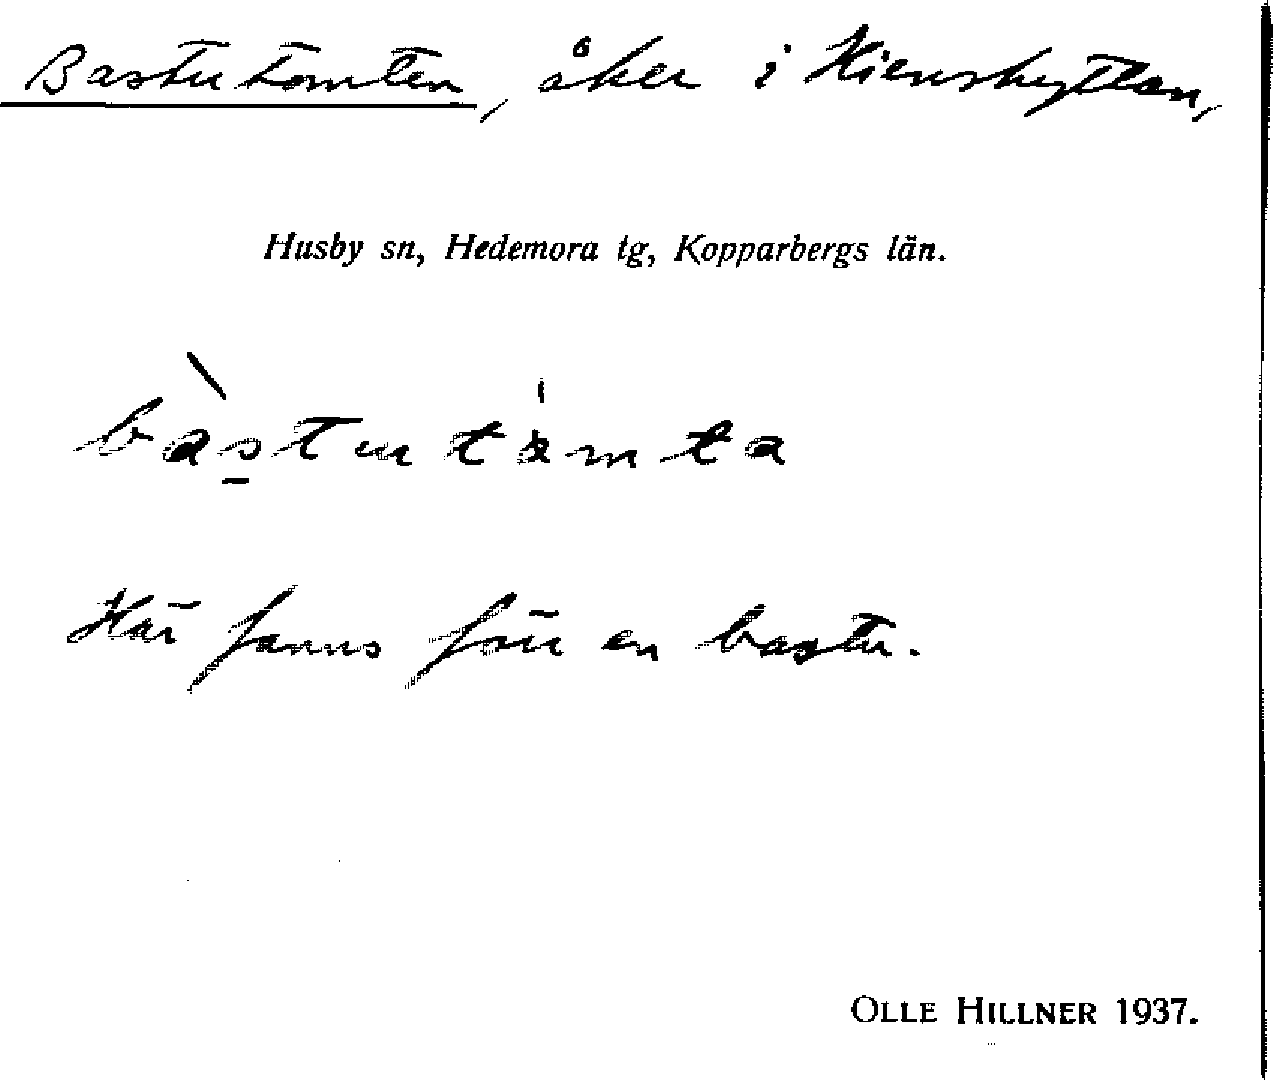 Bastutomten, åker i Kienshyttan,
Husby sn, Hedemora tg, Kopparbergs län.
bàstutȧmta
Här fanns förr en bastu.
OLLE HILLNER 1937.